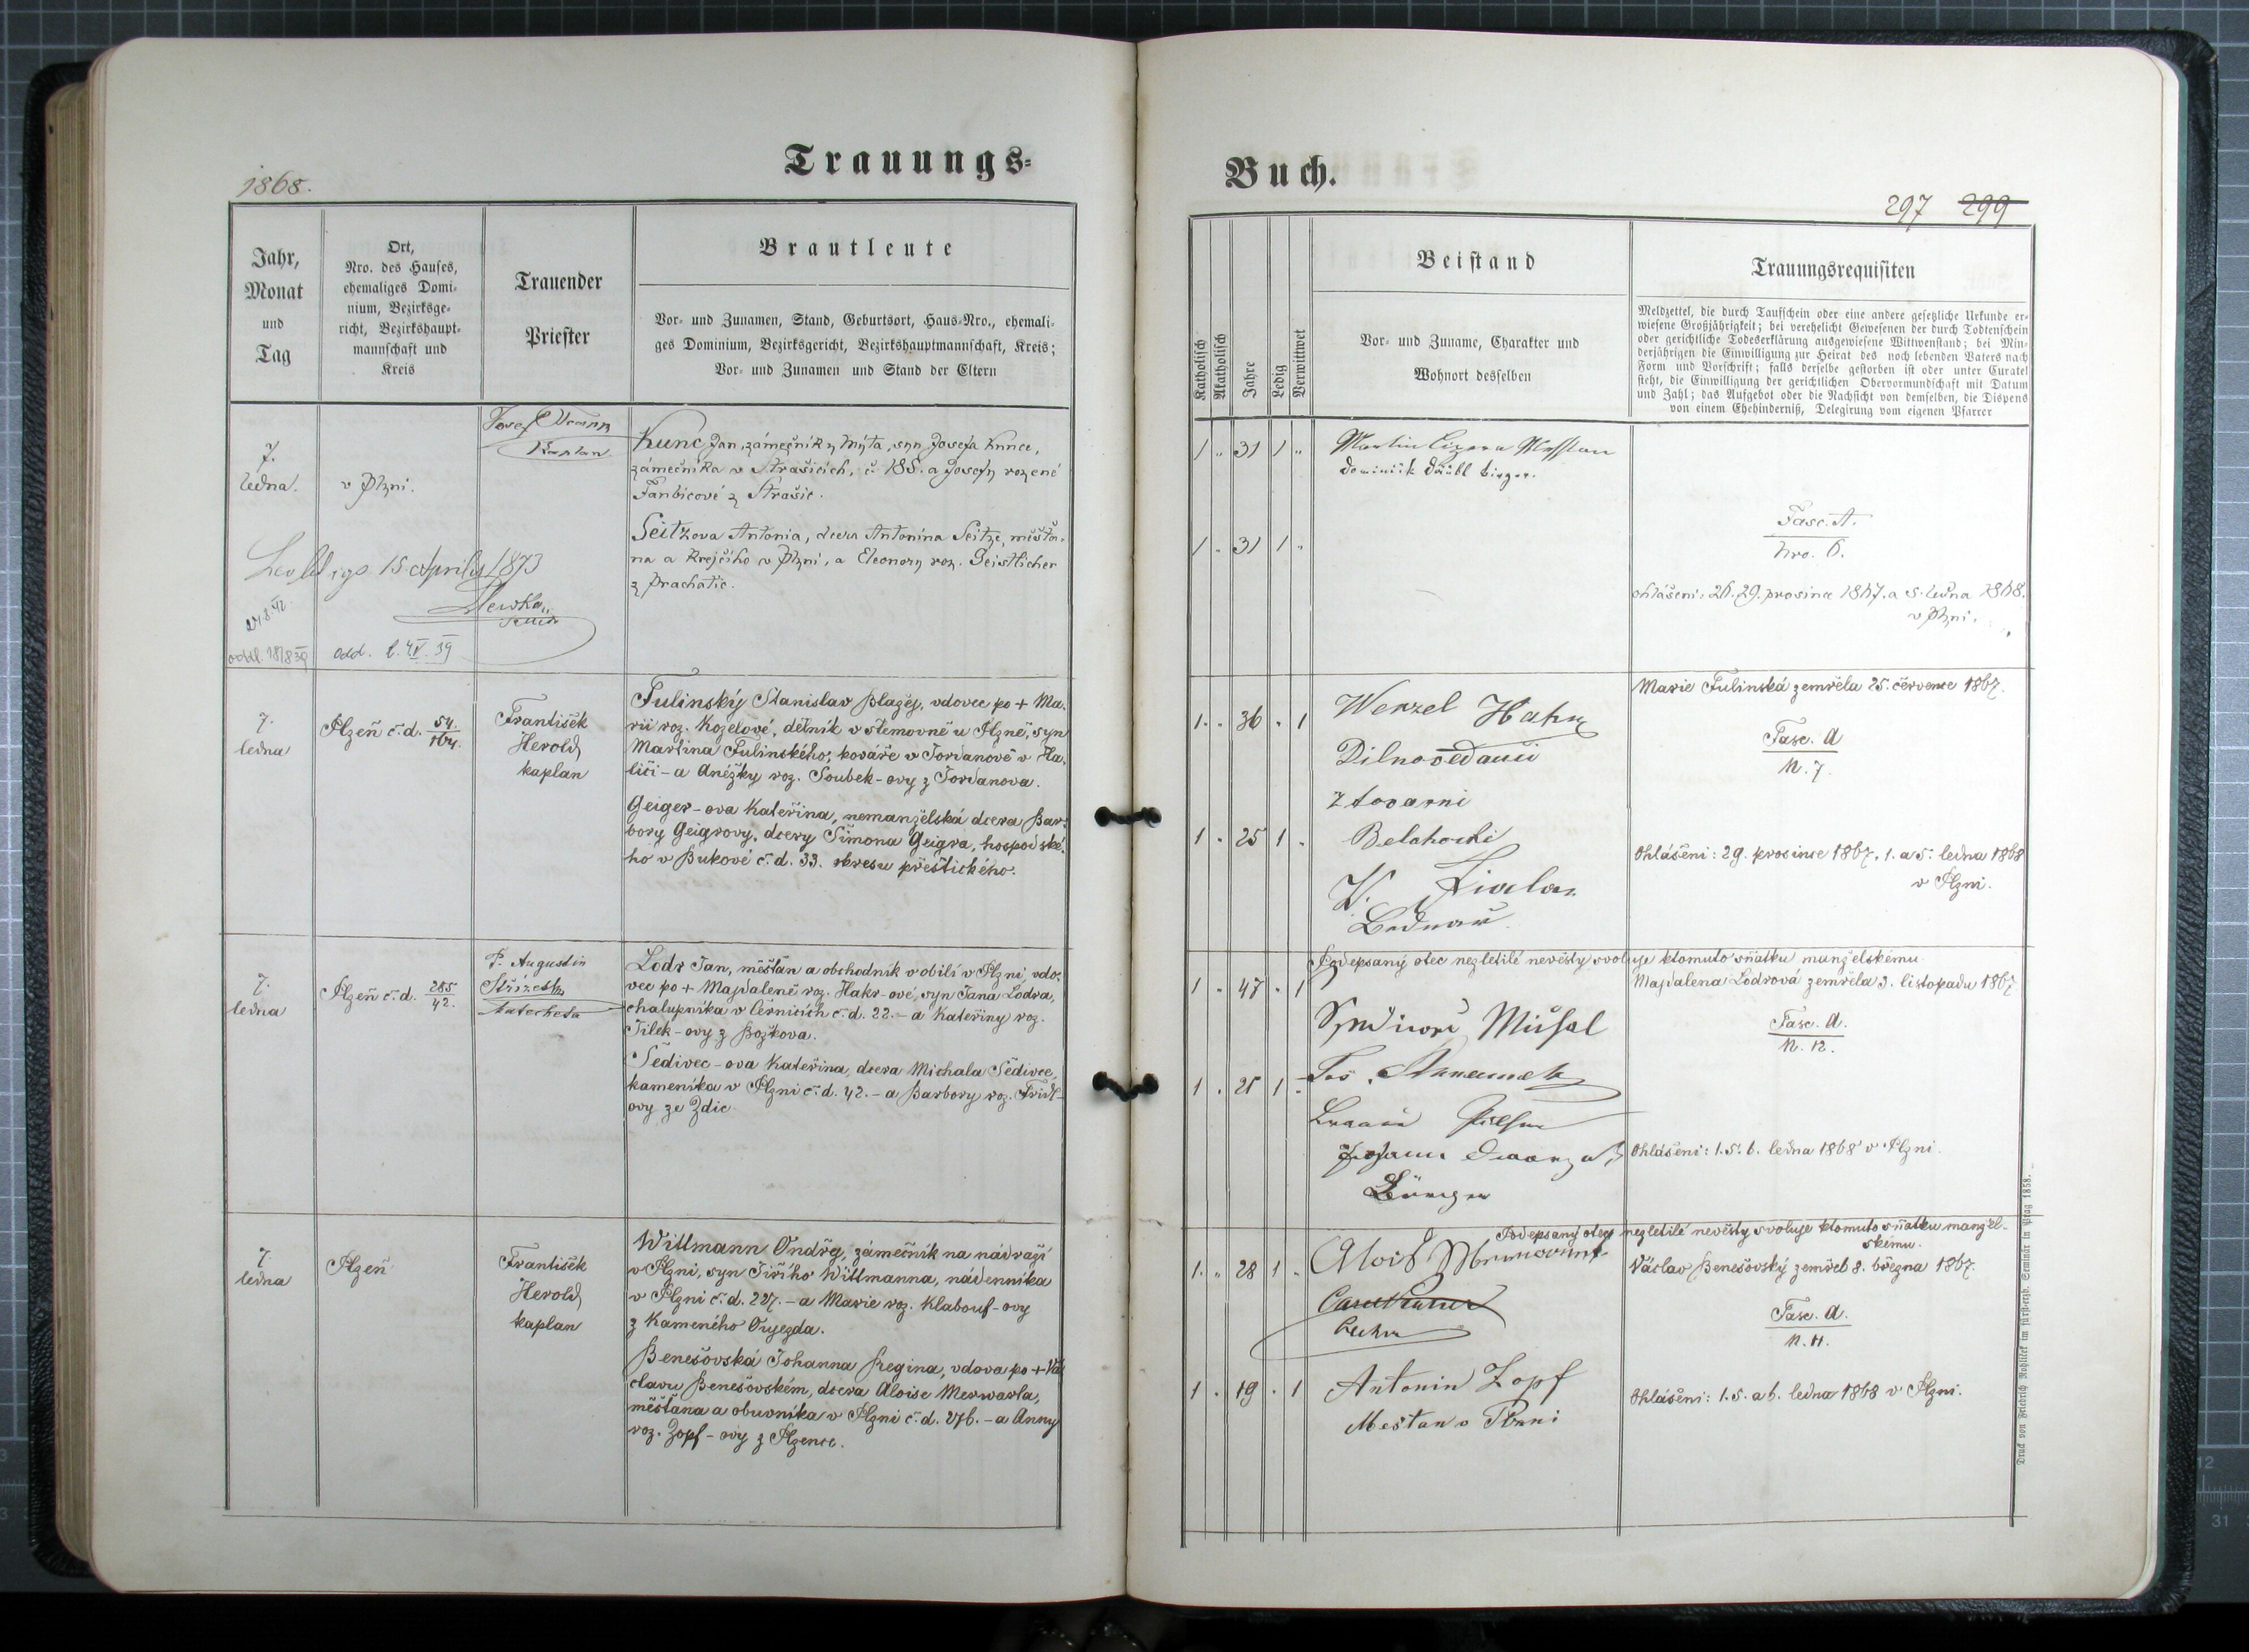 Trauungs=
1868.
Jahr,
Monat
und
Tag
Ort,
Nro. des Hauses,
ehemaliges Domi=
nium, Bezirksge=
richt, Bezirkshaupt=
mannschaft und
Kreis
Trauender
Priester
Brautleute
Vor= und Zunamen, Stand, Geburtsort, Haus=Nro., ehemali=
ges Dominium, Bezirksgericht, Bezirkshauptmannschaft, Kreis;
Vor= und Zunamen und Stand der Eltern
7.
ledna.
v Plzni.
Josef
Kaplan
Kunc Jan, zámečník z Mýta, syn Josefa Kunce,
zámečníka v Strašicích, č. 185. a Josefy rozené
z Strašic.
Seitzova Antonia, dcera Antonína Seitze, měšťa-
na a krejčího v Plzni, a Eleonory roz. Geistlicher
z Prachatic.
15. Aprilis 1873
odd. 2. 4/V. 39
7.
ledna
Plzeň č. d. 54./164.
František
Herold,
kaplan
Fulinský Stanislav Blažej, vdovec po + Ma-
rii roz. Kozelové, dělník v štemovně u Plzně, syn
Martina Fulinského, kováře v Jordanově v Ha-
liči - a Anežky roz. Soubek-ovy z Jordanova.
Geiger-ova Kateřina, nemanželská dcera Bar-
bory Geigrovy, dcery Šimona Geigra, hospodské-
ho v Bukové č. d. 33. okresu přeštického.
7.
ledna
Plzeň č. d. 285/42.
P. Augustin
Střížek
Katecheta
Lodr Jan, měšťan a obchodník v obilí v Plzni, vdo-
vec po + Majdaleně roz. Hakr-ové, syn Jana Lodra,
chalupníka v Černicích č. d. 22. - a Kateřiny roz.
Jílek-ovy z Božkova.
Šedivec-ova Kateřina, dcera Michala Šedivce,
kameníka v Plzni č. d. 42. - a Barbory roz. Fridl-
ovy ze Zdic.
7.
ledna
Plzeň
František
Herold,
kaplan
Willmann Ondřej, zámečník na nádraží
v Plzni, syn Jiřího Willmanna, nádenníka
v Plzni č. d. 227. - a Marie roz. Klabouf-ovy
z Kameného Oujezda.
Benešovská Johanna Regina, vdova po + Vá-
clavu Benešovském, dcera Aloise Merwarta,
měšťana a obuvníka v Plzni č. d. 276. - a Anny
roz. Zopf-ovy z Plzence.
Buch.
297 299
Katholisch
Akatholisch
Jahre
Ledig
Verwittwet
Beistand
Vor= und Zuname, Charakter und
Wohnort desselben
Trauungsrequisiten
Meldzettel, die durch Taufschein oder eine andere gesetzliche Urkunde er=
wiesene Großjährigkeit; bei verehelicht Gewesenen der durch Todtenschein
oder gerichtliche Todeserklärung ausgewiesene Wittwenstand; bei Min=
derjährigen die Einwilligung zur Heirat des noch lebenden Vaters nach
Form und Vorschrift; falls derselbe gestorben ist oder unter Curatel
steht, die Einwilligung der gerichtlichen Obervormundschaft mit Datum
und Zahl; das Aufgebot oder die Nachsicht von demselben, die Dispens
von einem Ehehinderniß, Delegirung vom eigenen Pfarrer
1 " 31 1 "
Martin
Dominik
1 " 31 1 "
Fasc. A.
Nro. 6.
ohlášení: 26. 29. prosince 1867. a 5. ledna 1868.
v Plzni.
Marie Fulinská zemřela 25. července 1867.
1. " 36 " 1
Wenzel Hahn
z tovarni
Fasc. A
N. 7.
1 " 25 1 "
Ohlášení: 29. prosince 1867, 1. a 5. ledna 1868
v Plzni.
W. Fiala
Bednař
Podepsaný otec nezletilé nevěsty svoluje ktomuto sňatku manželskému.
1 " 47 " 1
Majdalena Lodrová zemřela 3. listopadu 1867
Fasc. A.
N. 12.
1 " 21 1 "
Johann
Ohlášení: 1. 5. 6. ledna 1868 v Plzni.
Podepsaný otec nezletilé nevěsty svoluje ktomuto sňatku manžel-
skému.
1. " 28 1 "
Alois
Václav Benešovský zemřel 8. března 1867.
Fasc. A.
N. 11.
1 " 19 " 1
Antonin Zopf
Mestan v Plzni
Ohlášení: 1. 5. a 6. ledna 1868 v Plzni.
Druck von Friedrich Rohliček im fürst=erzb. Seminär in Prag 1858.